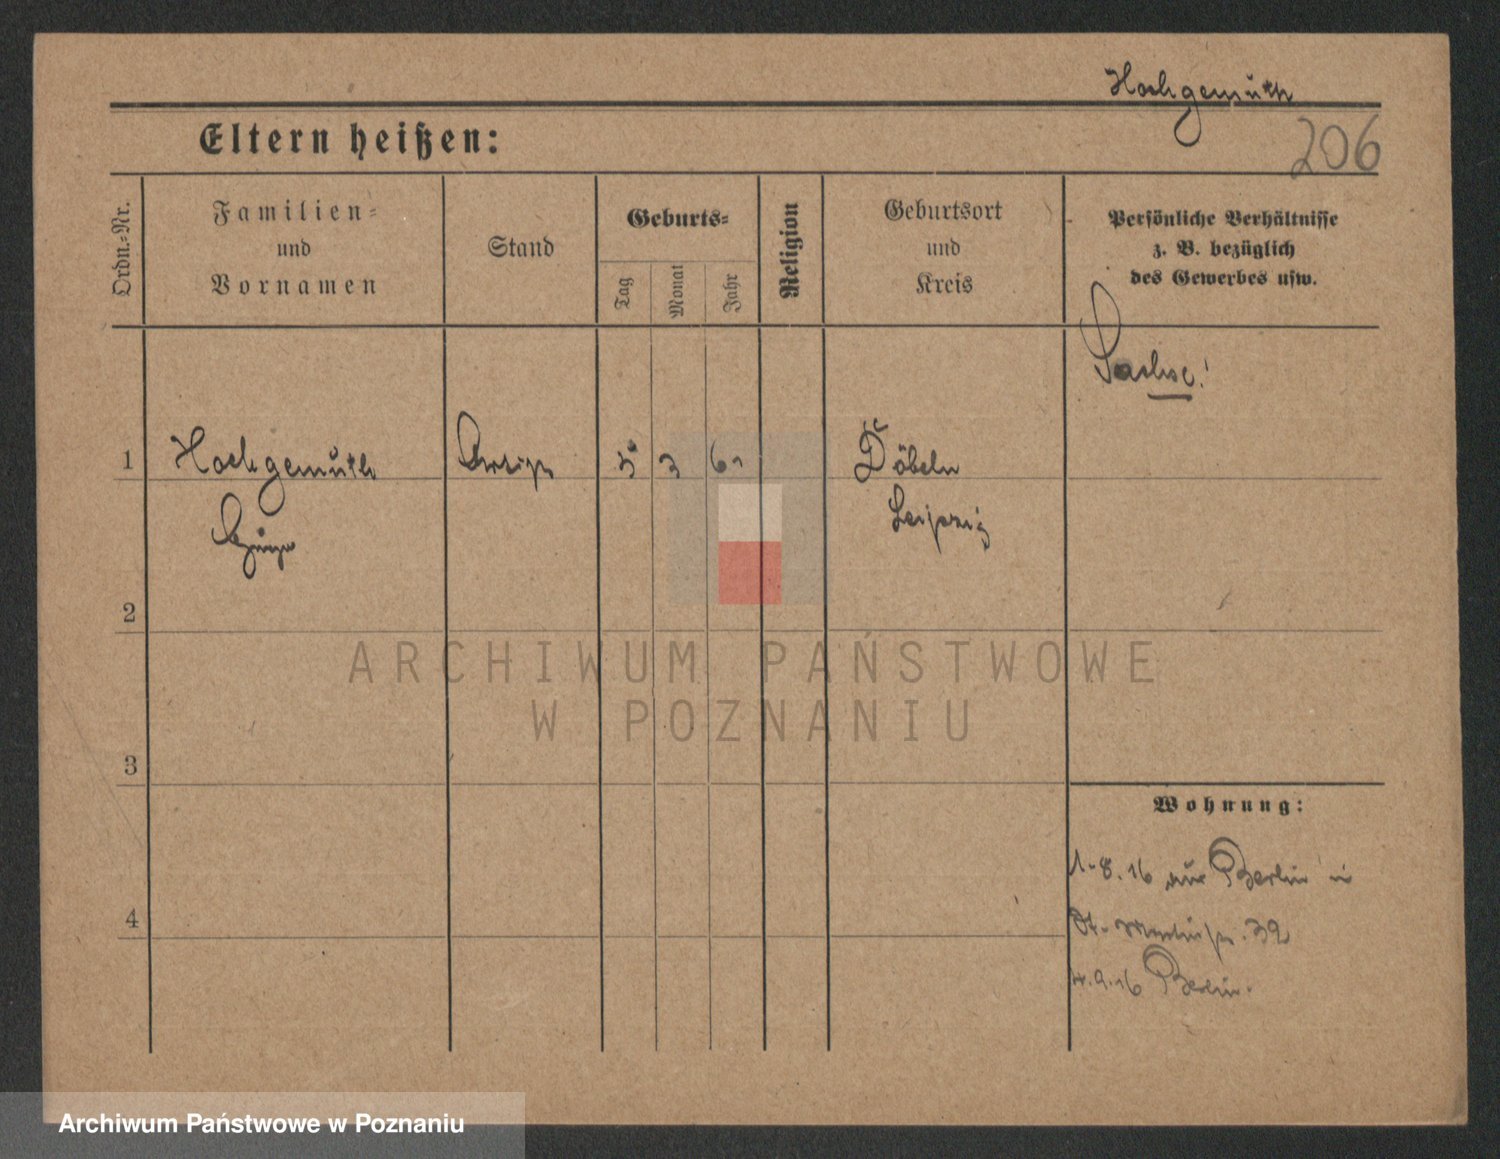 Hochgemuth
206
Eltern heißen:
Ordn.-Nr.
Familien-
und
Vornamen
Stand
Geburts-
Tag
Monat
Jahr
Religion
Geburtsort
und
Kreis
Persönliche Verhältnisse
z. B. bezüglich
des Gewerbes usw.
Sachse!
1
Hochgemuth
5
3
Döbeln
Leipzig
2
ARCHIWUM PAŃSTWOWE
W POZNANIU
3
Wohnung:
1.8.16 aus Berlin in
4
St. Martinstr. 39
4.9.16 Berlin.
Archiwum Państwowe w Poznaniu